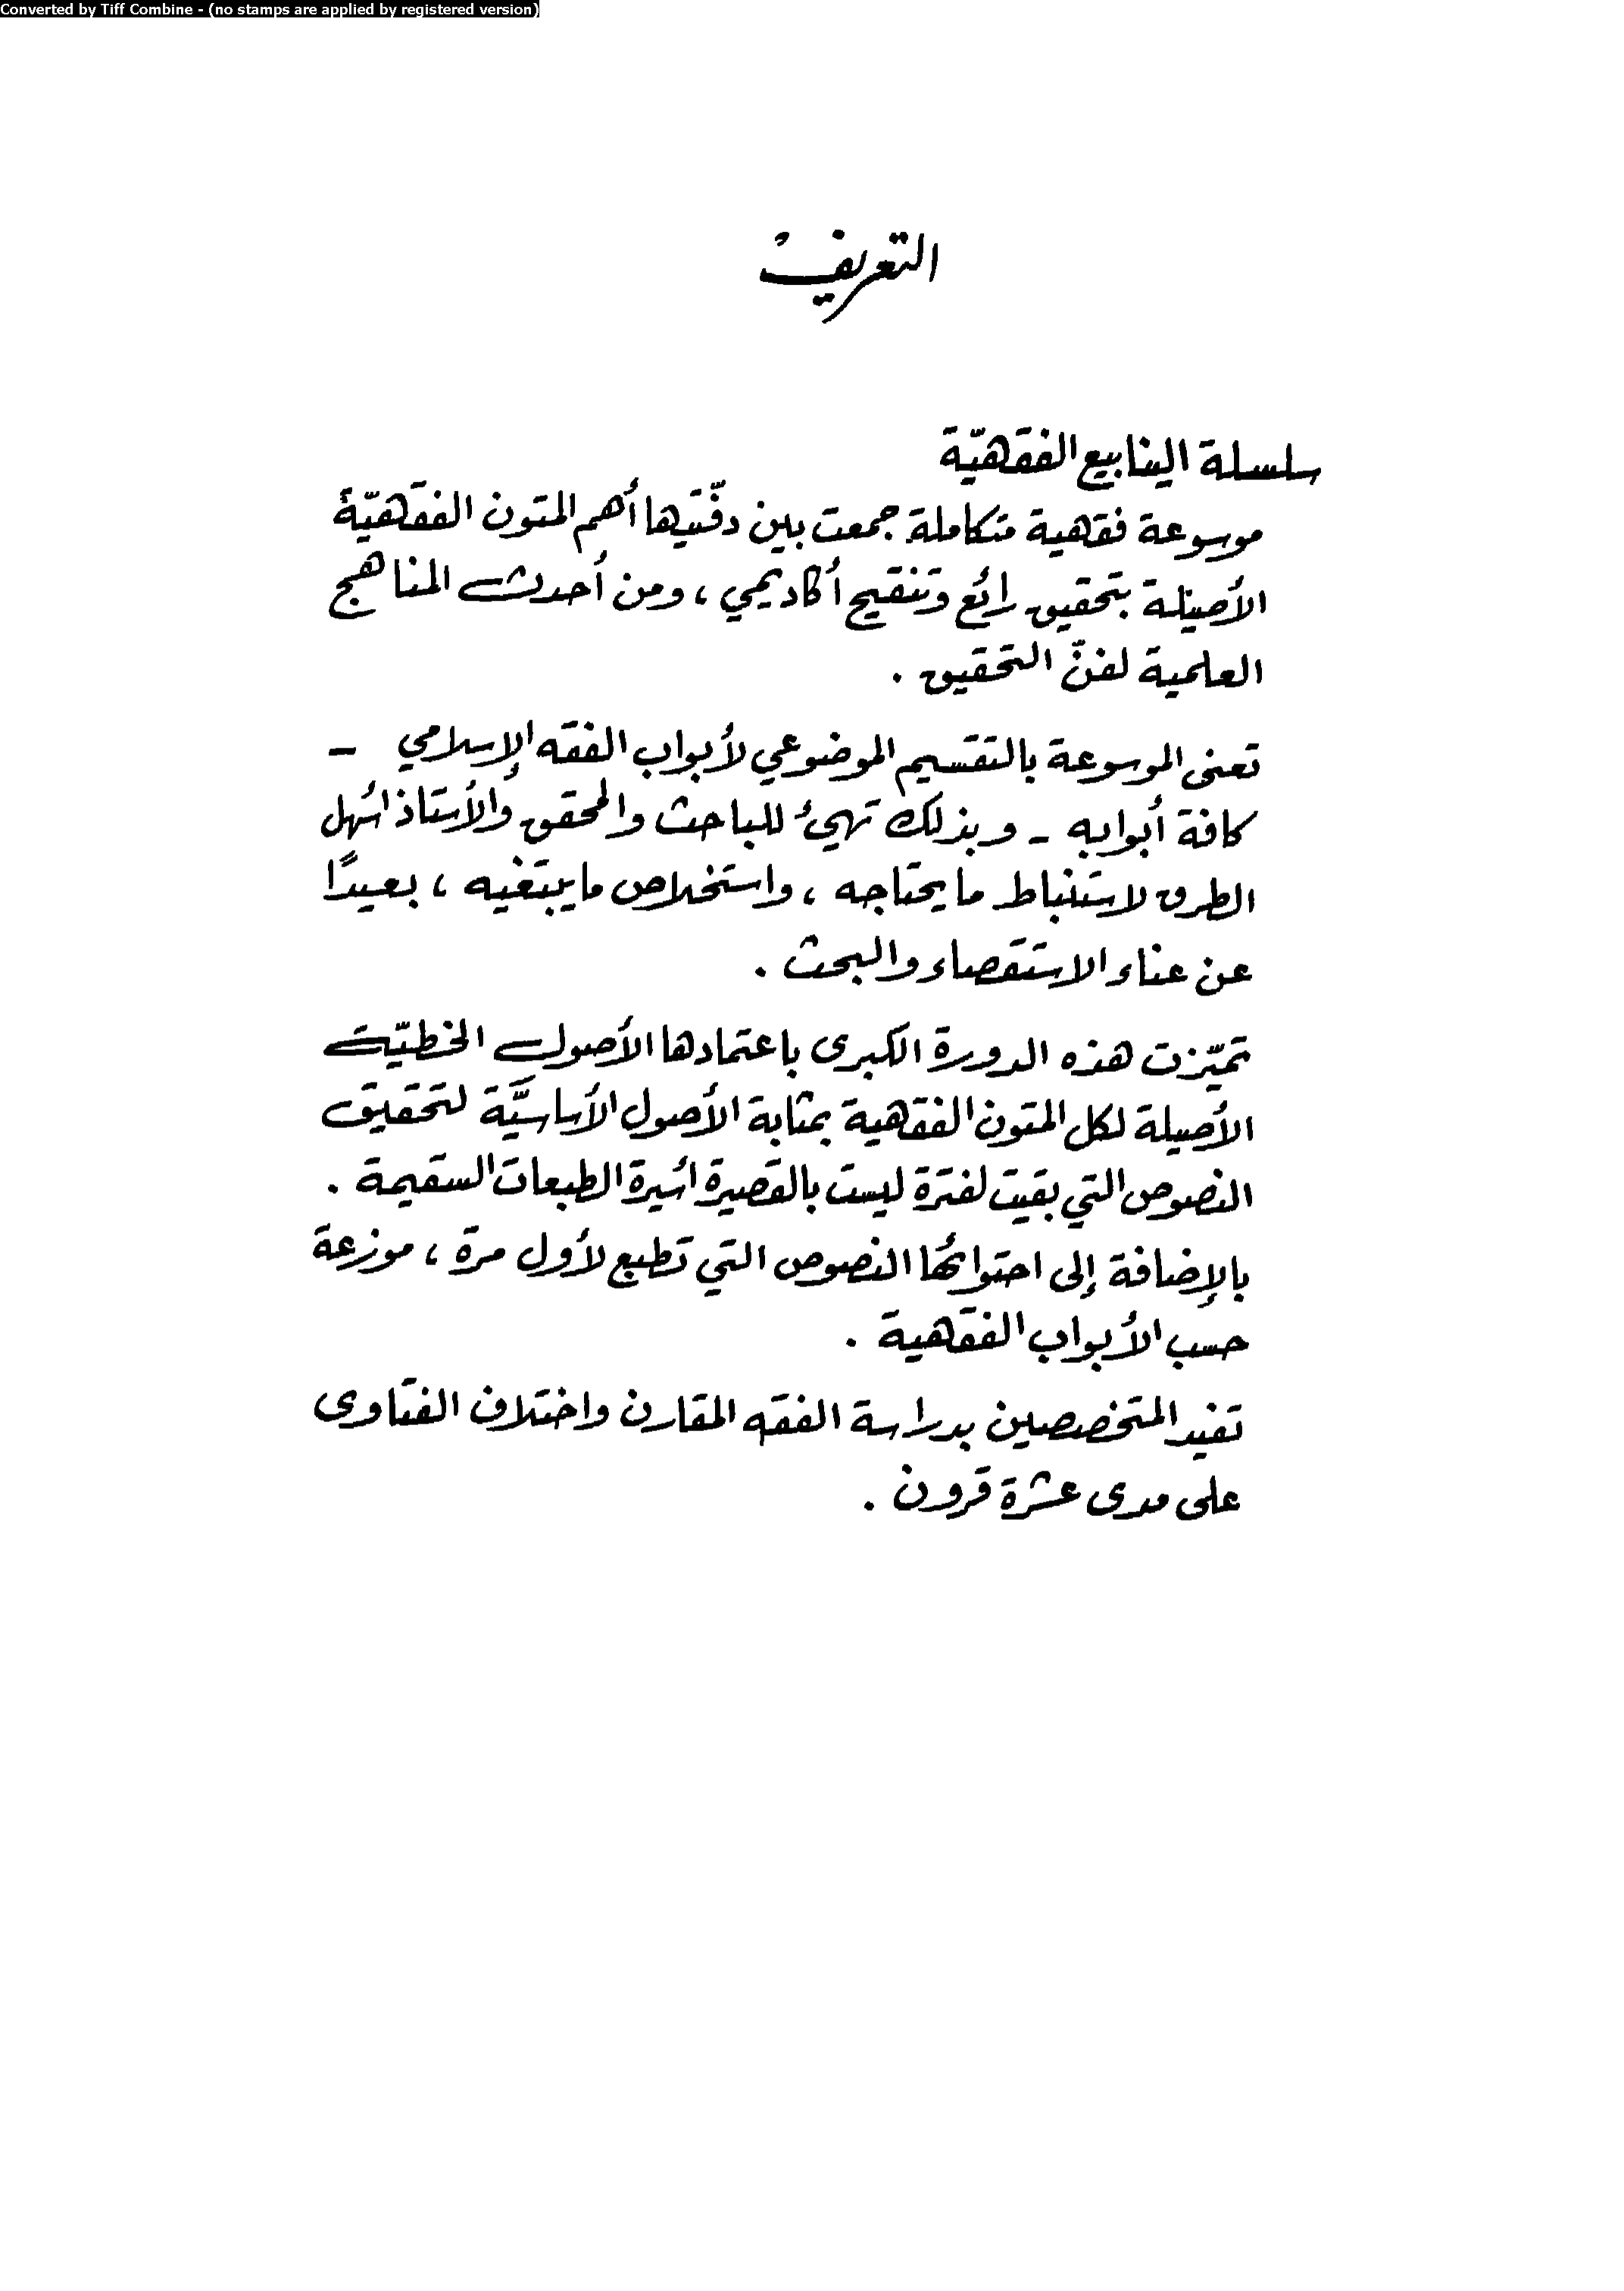 Converted by Tiff Combine - (no stamps are applied by registered version)
التعريف
سلسلة الينابيع الفقهيّة
موسوعة فقهية متكاملة جمعت بين دفّتيها أهم المتون الفقهيّة
الأصيلة بتحقيق رائع وتنقيح أكاديمي، ومن أحدث المناهج
العلمية لفنّ التحقيق .
تعنى الموسوعة بالتقسيم الموضوعي لأبواب الفقه الإسلامي –
كافة أبوابه – وبذلك تهيئ للباحث والمحقق والأستاذ أسهل
الطرق لاستنباط ما يحتاجه ، واستخلاص ما يبتغيه ، بعيدًا
عن عناء الاستقصاء والبحث .
تميّزت هذه الدورة الكبرى باعتمادها الأصول الخطيّة
الأصيلة لكل المتون الفقهية بمثابة الأصول الأساسيَّة لتحقيق
النصوص التي بقيت لفترة ليست بالقصيرة أسيرة الطبعات السقيمة .
بالإضافة إلى احتوائها النصوص التي تطبع لأول مرة ، موزعة
حسب الأبواب الفقهية .
تفيد المتخصصين بدراسة الفقه المقارن واختلاف الفتاوى
على مدى عشرة قرون .